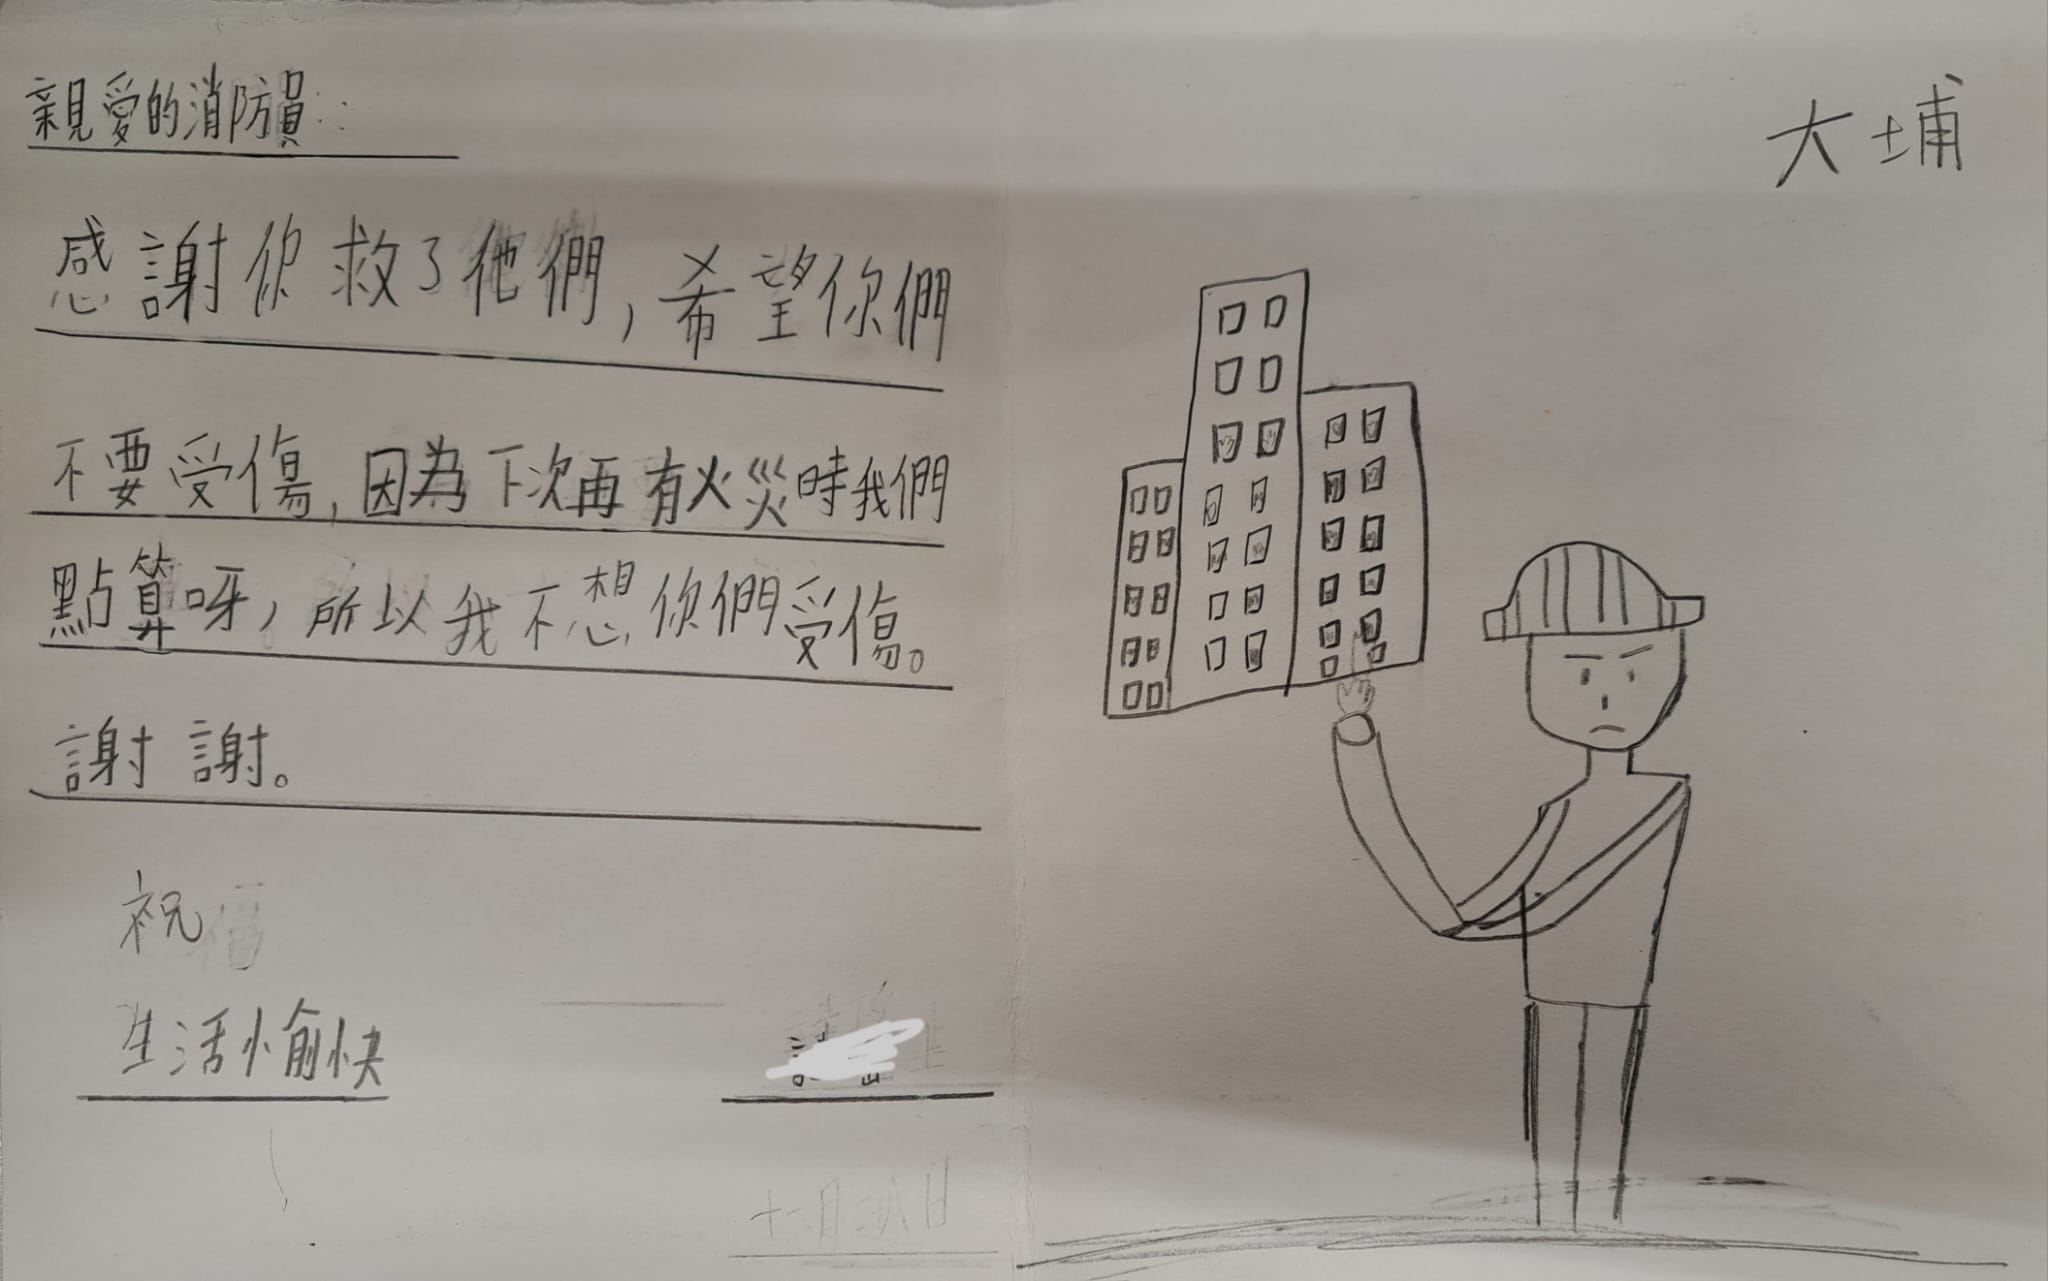 親愛的消防員：
感謝你救了他們，希望你們
不要受傷，因為下次再有火災時我們
點算呀，所以我不想你們受傷。
謝謝。
祝
生活愉快
大埔